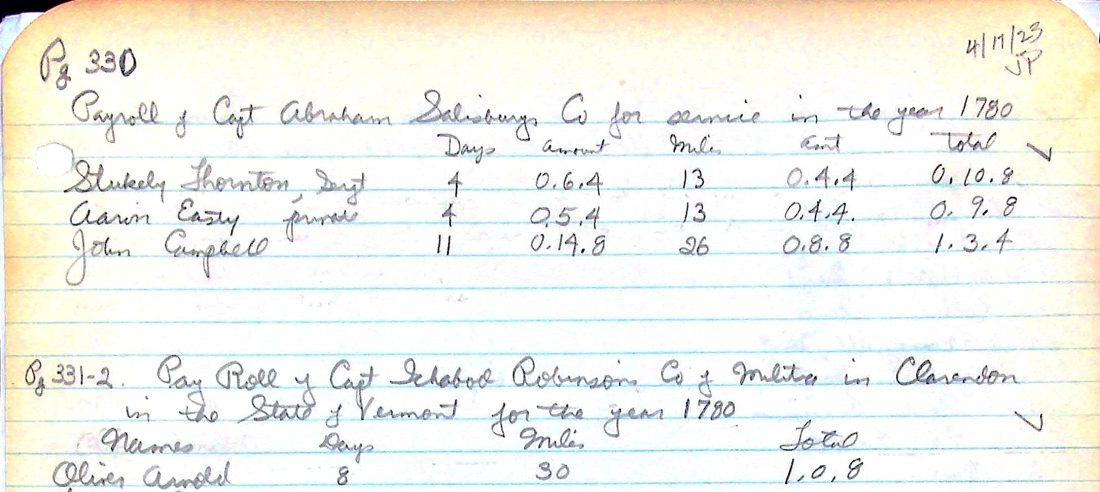 4/17/23
Pg 330 JP
Payroll of Capt Abraham Salisburys Co for service in the year 1780
Days Amount Miles Amt Total
Stukely Thornton, Sergt 4 0.6.4 13 0.4.4 0.10.8
Aaron Easty private 4 0.5.4 13 0.4.4. 0.9.8
John Campbell 11 0.14.8 26 0.8.8 1.3.4
Pg 331-2. Pay Roll of Capt Ichabod Robinsons Co of Militia in Clarendon
in the State of Vermont for the year 1780
Names Days Miles Total
Oliver Arnold 8 30 1.0.8